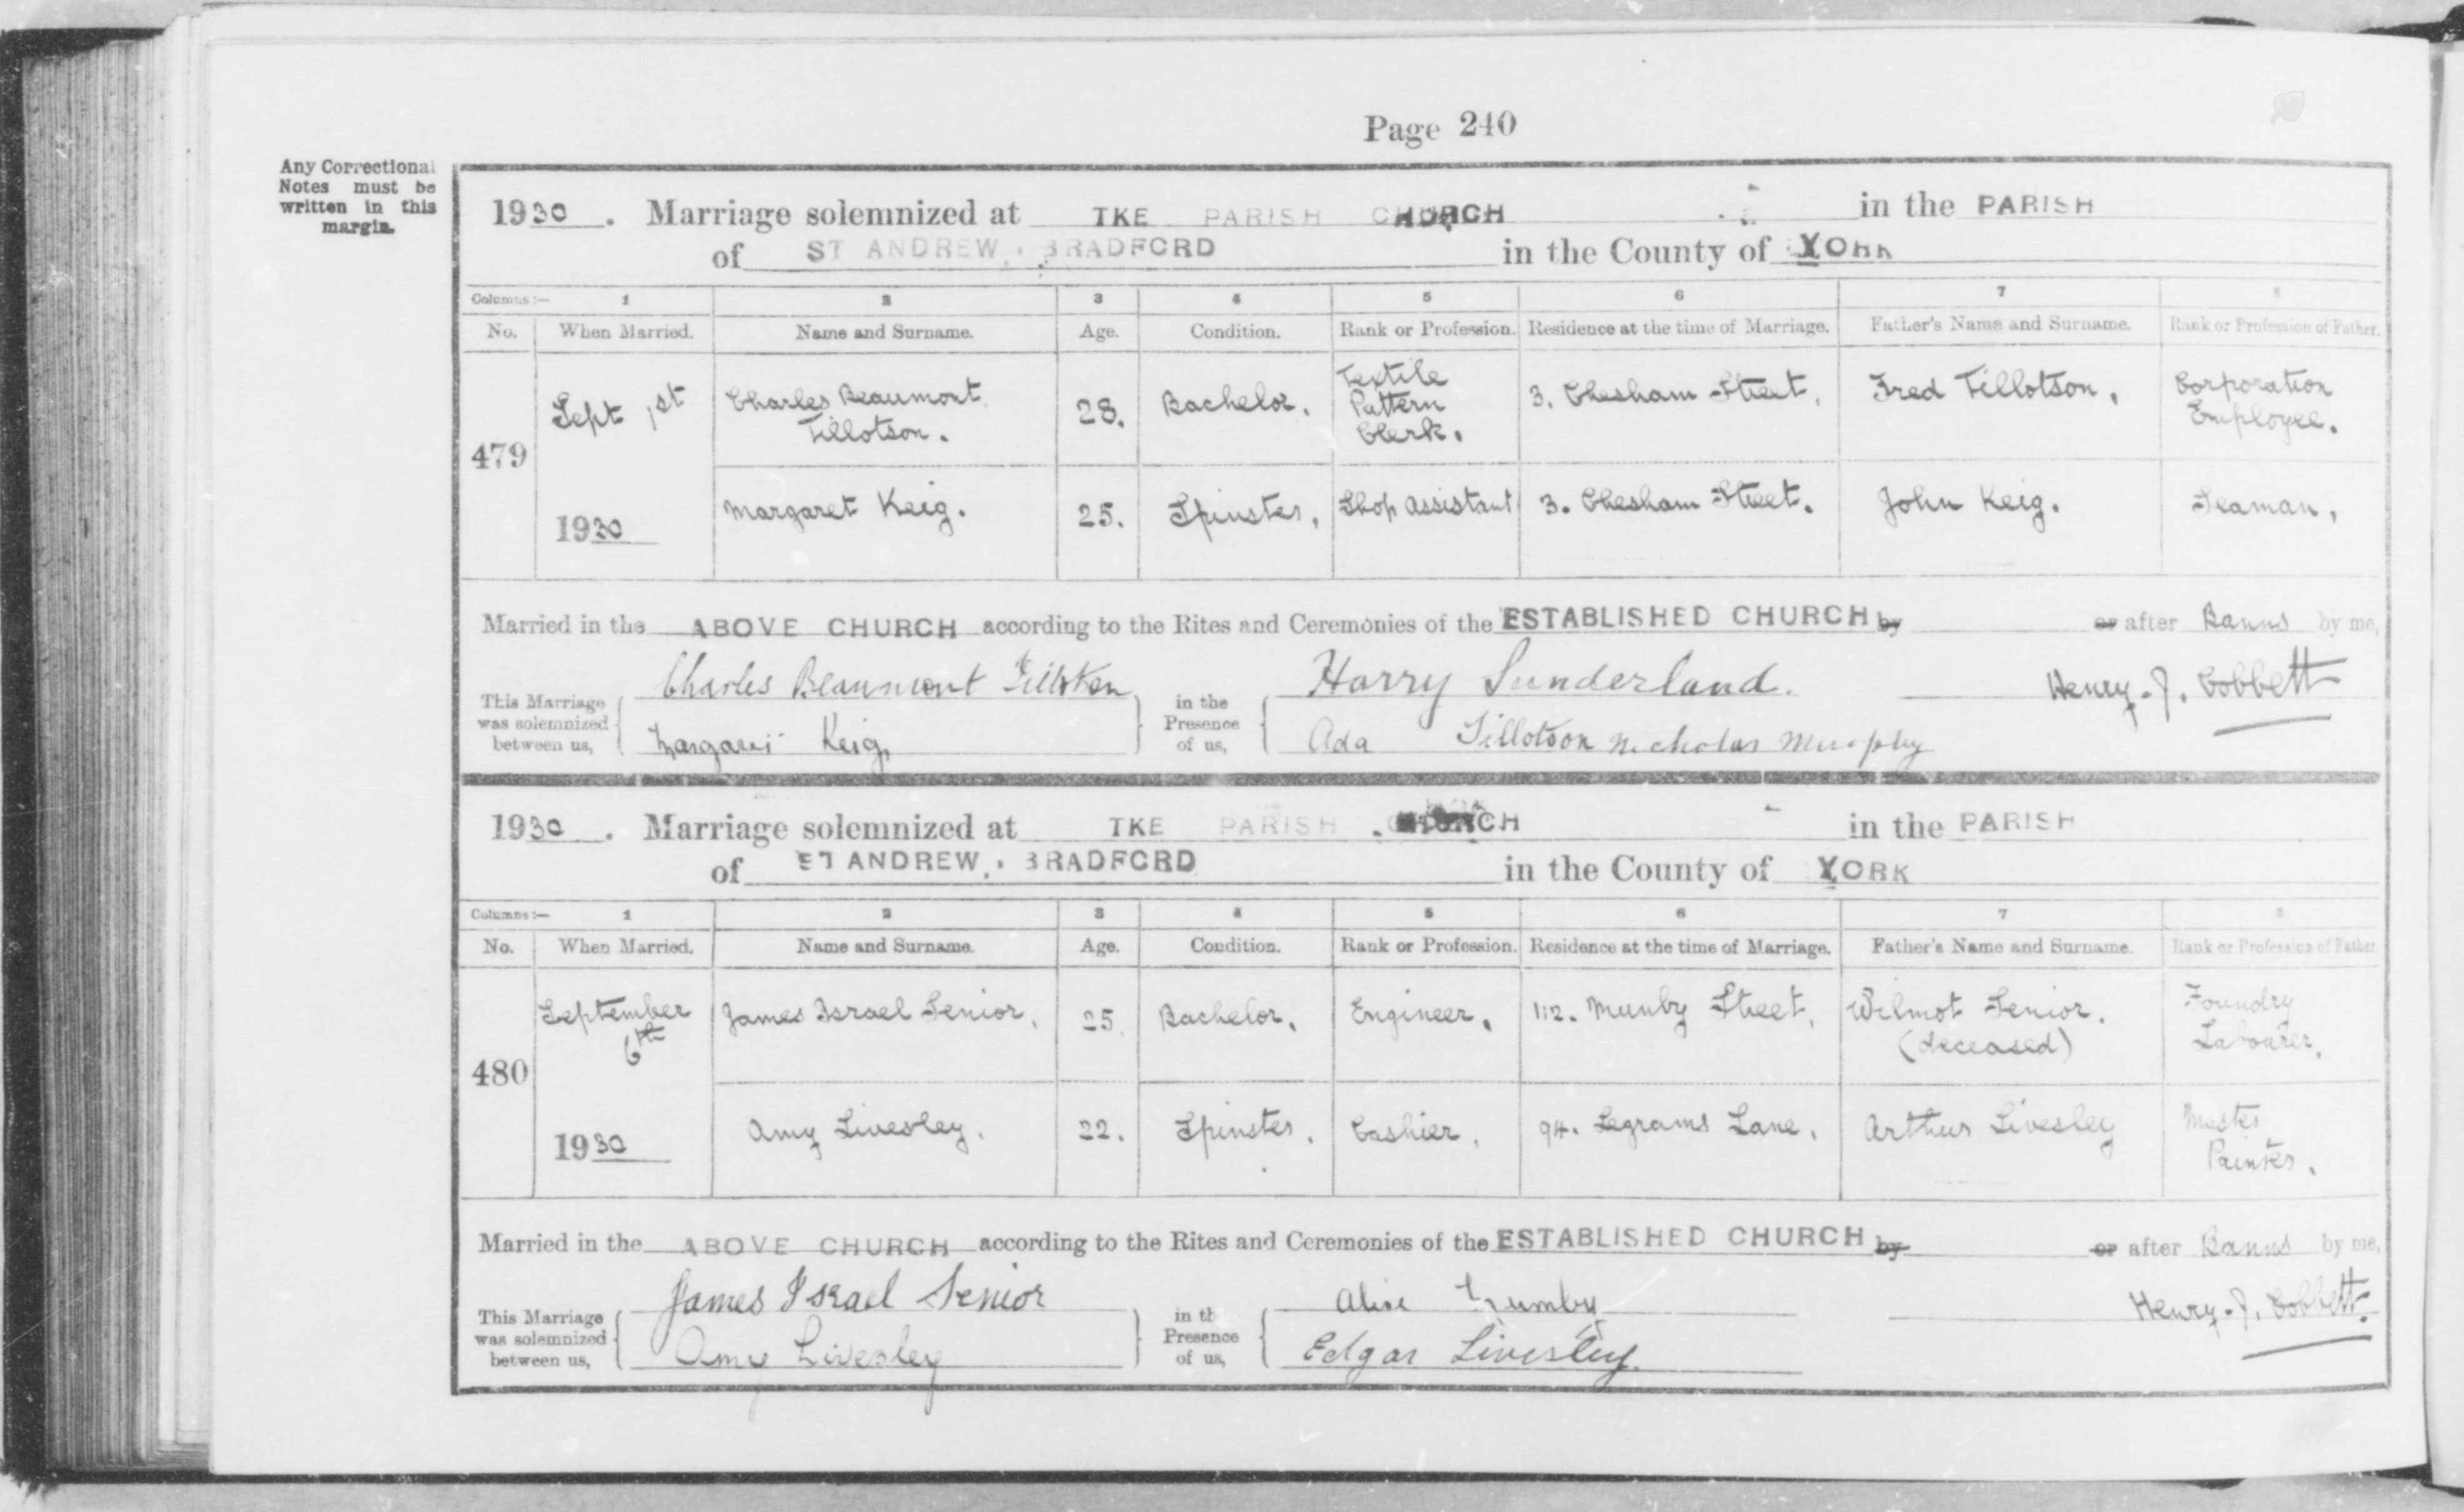 Page 240
Any Correctional
Notes must be
written in this
margin.
1930. Marriage solemnized at TKE PARISH CHURCH in the PARISH
of ST ANDREW, BRADFORD in the County of YORK
Columns:— 1 2 3 4 5 6 7 8
No. When Married. Name and Surname. Age. Condition. Rank or Profession. Residence at the time of Marriage. Father's Name and Surname. Rank or Profession of Father.
479 Sept 1st 1930
Charles Beaumont Tillotson. 28. Bachelor. Textile Pattern Clerk. 3. Chesham Street, Fred Tillotson, Corporation Employee.
Margaret Keig. 25. Spinster, Shop Assistant 3. Chesham Street. John Keig. Seaman,
Married in the ABOVE CHURCH according to the Rites and Ceremonies of the ESTABLISHED CHURCH by or after Banns by me,
This Marriage was solemnized between us, Charles Beaumont Tillotson in the Presence of us, Harry Sunderland. Henry. J. Cobbett
Margaret Keig Ada Tillotson Nicholas Murphy
1930. Marriage solemnized at TKE PARISH CHURCH in the PARISH
of ST ANDREW, BRADFORD in the County of YORK
Columns:— 1 2 3 4 5 6 7 8
No. When Married. Name and Surname. Age. Condition. Rank or Profession. Residence at the time of Marriage. Father's Name and Surname. Rank or Profession of Father
480 September 6th 1930
James Israel Senior, 25. Bachelor. Engineer. 112. Munby Street, Wilmot Senior. (deceased) Foundry Labourer,
Amy Livesley. 22. Spinster. Cashier. 94. Legrams Lane. Arthur Livesley Master Painter.
Married in the ABOVE CHURCH according to the Rites and Ceremonies of the ESTABLISHED CHURCH by or after Banns by me,
This Marriage was solemnized between us, James Israel Senior in th Presence of us, Henry. J. Cobbett.
Amy Livesley Edgar Livesley.